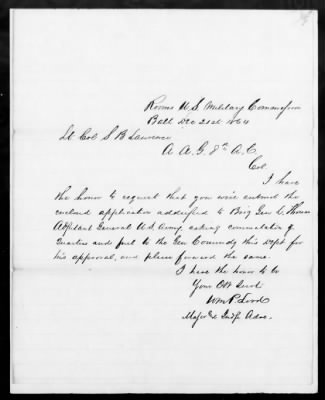 Rooms U.S. Military Commission
Balt Dec 21st 1864
Lt Col S B Lawrence
A. A. G. 8th A. C.
Col.
I have
the honor to request that you will submit the
enclosed application addressed to Brig Gen L. Thomas
Adjutant General U S Army, asking commutation of
Quarters and fuel to the Gen Commdg this Dept for
his approval, and please forward the same.
I have the honor to be
Your Obt Servt
Wm P. Lord
Major & Judge Advc.